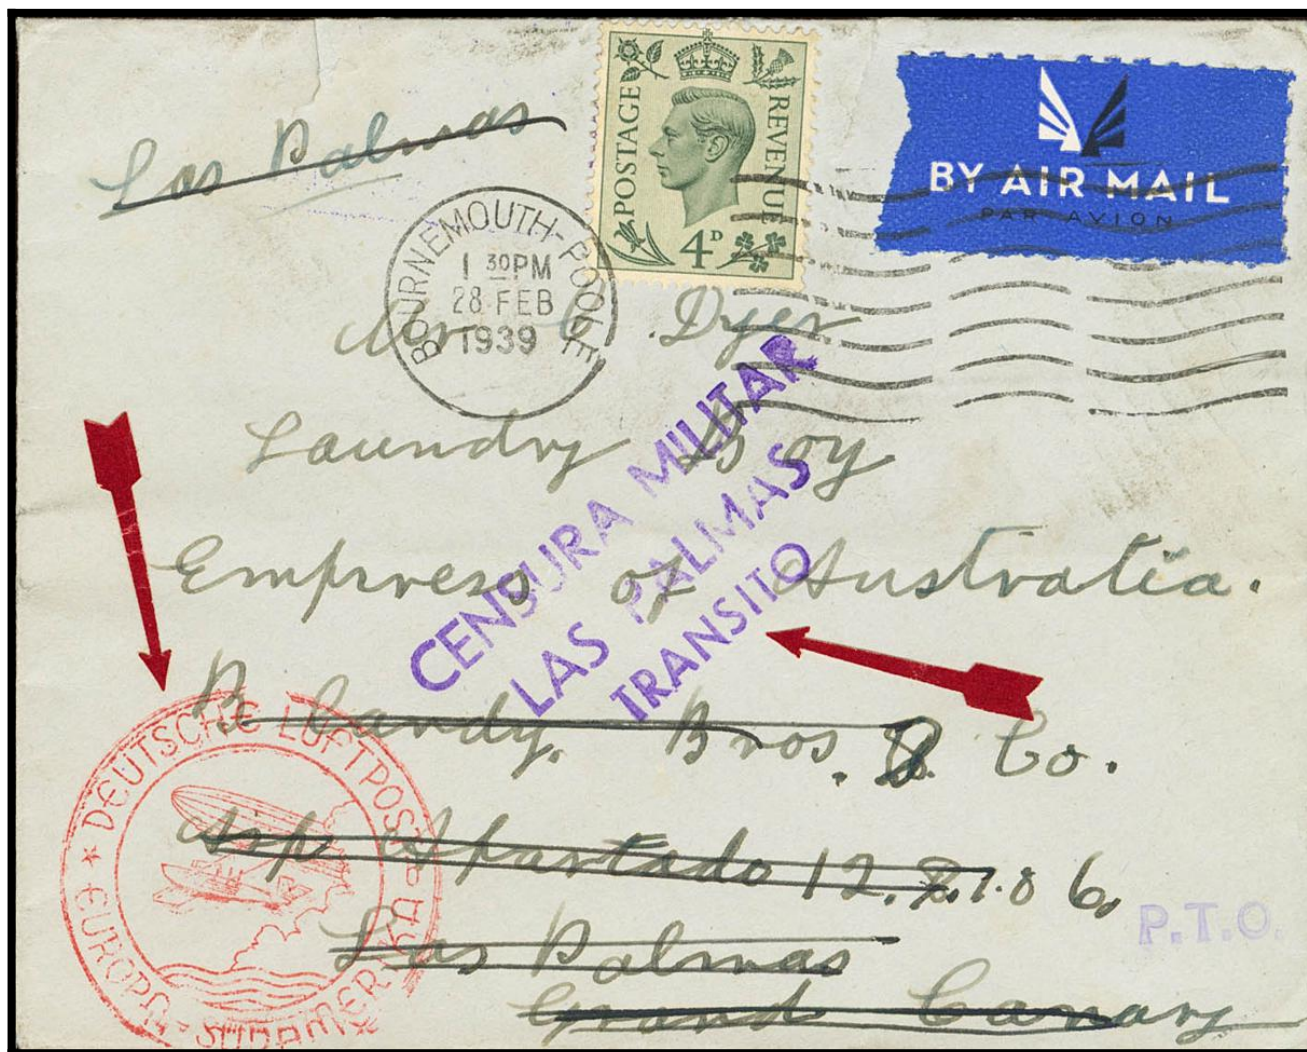 Las Palmas
POSTAGE REVENUE
4D
BY AIR MAIL
PAR AVION
BOURNEMOUTH-POOLE
1 30PM
28 FEB
1939
Mr. C. Dyer
Laundry Boy
Empress of Australia.
CENSURA MILITAR
LAS PALMAS
TRANSITO
Bros. & Co.
Apartado 12.
Las Palmas
Grand Canary
P.T.O.
* DEUTSCHE LUFTPOST *
EUROPA - SÜDAMERIKA